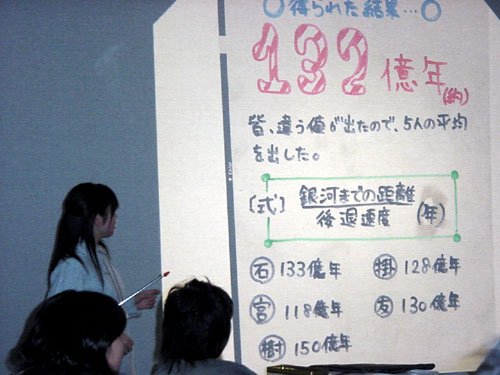 ○得られた結果…○
132億年(約)
皆、違う値が出たので、5人の平均
を出した。
〔式〕 銀河までの距離
後退速度 (年)
石 133億年 掛 128億年
宮 118億年 友 130億年
樹 150億年